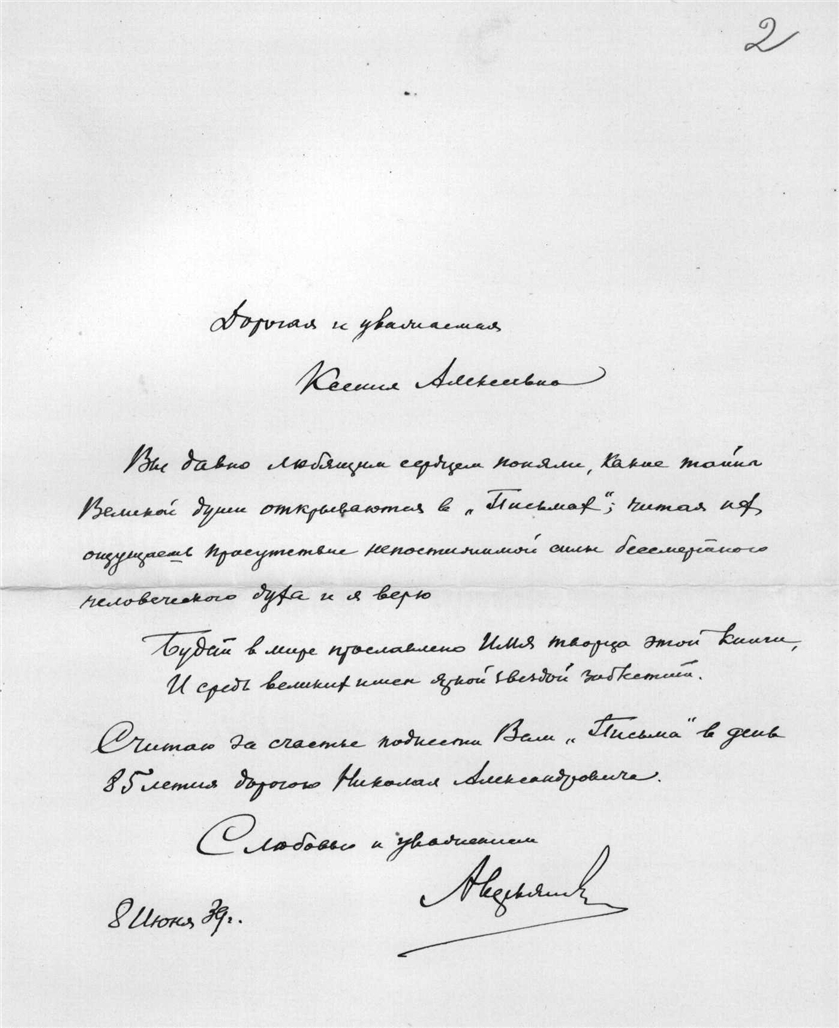 2
Дорогая и уважаемая
Ксения Алексеевна
Вы давно любящим сердцем поняли, какие тайны
Великой души открываются в „Письмах“; читая их,
ощущаешь присутствие непостижимой силы бессмертного
человеческого духа и я верю
Будет в мире прославлено Имя творца этой книги,
И средь великих имен яркой звездой заблестит.
Считаю за счастье поднести Вам „Письма“ в день
85 летия дорогого Николая Александровича.
С любовью и уважением
8 Июня 39 г.